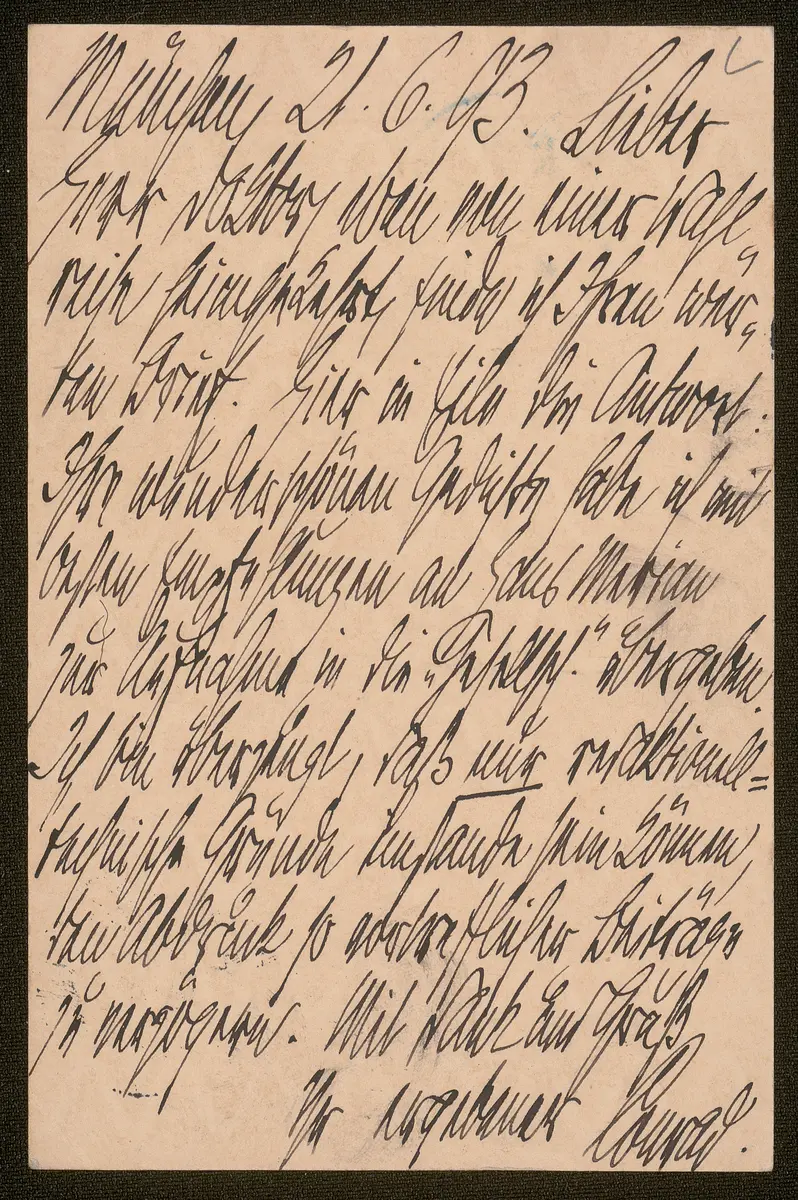 München, 21. 6. 93. Lieber
Herr Doktor, eben von einer Wahl-
reise heimgekehrt, finde ich Ihren wer-
ten Brief. Hier in Eile die Antwort:
Ihre wunderschönen Gedichte habe ich mit
besten Empfehlungen an Hans Merian
zur Aufnahme in die „Gesellsch." übergeben.
Ich bin überzeugt, daß nur redaktionell=
technische Gründe imstande sein können,
den Abdruck so vortrefflicher Beiträge
zu verzögern. Mit Dank und Gruß
Ihr ergebener Conrad.